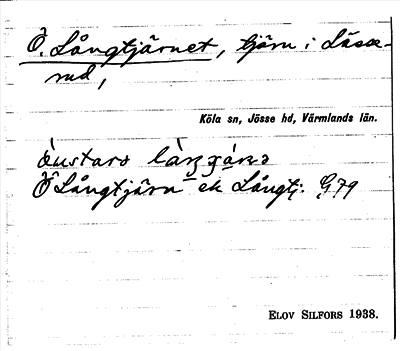 Ö. Långtjärnet, tjärn i Lässe-
rud,
Köla sn, Jösse hd, Värmlands län.
Ö Långtjärn ek Långtj: G79
ELOV SILFORS 1938.